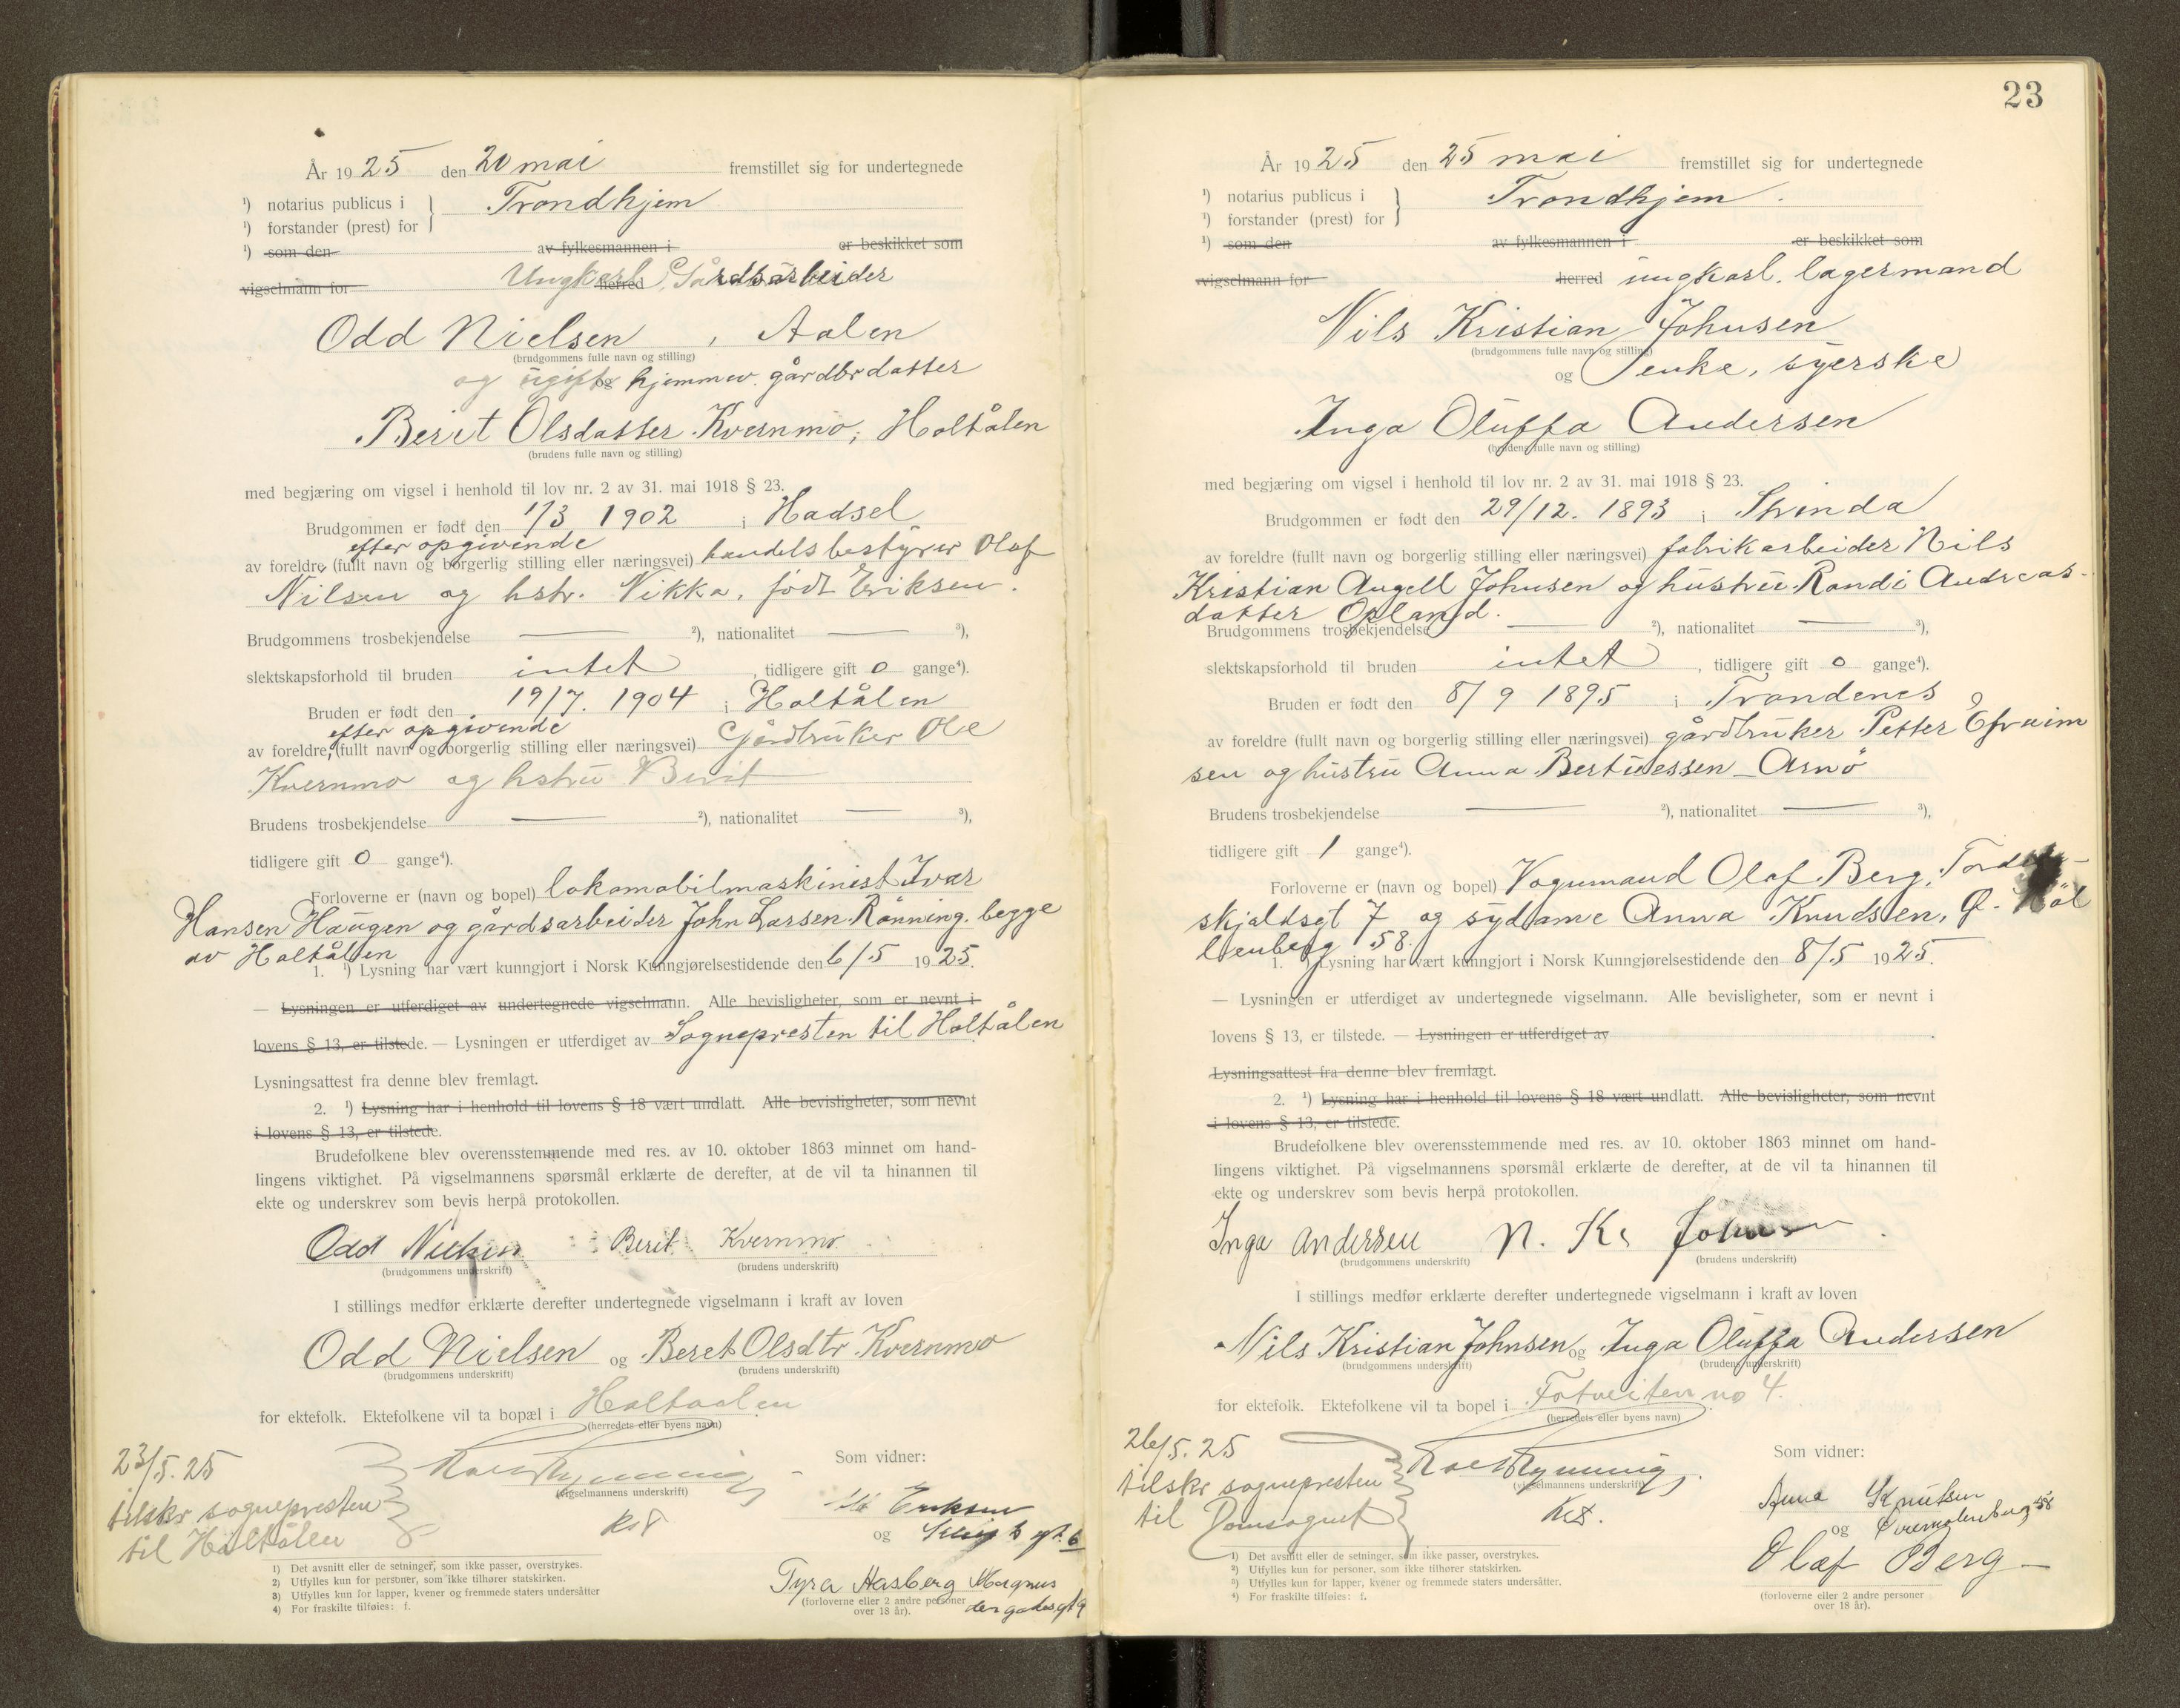 År 1925 den 20 mai fremstillet sig for undertegnede
¹) notarius publicus i
¹) forstander (prest) for } Trondhjem
¹) som den av fylkesmannen i er beskikket som
vigselmann for herred Ungkarl, Gårdsarbeider
Odd Nielsen, Aalen
(brudgommens fulle navn og stilling)
og ugift og hjemmev. gårdbrdatter
Berit Olsdatter Kvernmo, Holtålen
(brudens fulle navn og stilling)
med begjæring om vigsel i henhold til lov nr. 2 av 31. mai 1918 § 23.
Brudgommen er født den 1/3 1902 i Hadsel
efter opgivende
av foreldre, (fullt navn og borgerlig stilling eller næringsvei) handelsbestyrer Olaf
Nilsen og hstr. Vikka, født Eriksen.
Brudgommens trosbekjendelse — ²), nationalitet — ³),
slektskapsforhold til bruden intet, tidligere gift 0 gange⁴).
Bruden er født den 19/7. 1904 i Holtålen
efter opgivende
av foreldre, (fullt navn og borgerlig stilling eller næringsvei) Gårdbruker Ole
Kvernmo og hstru Berit
Brudens trosbekjendelse — ²), nationalitet — ³),
tidligere gift 0 gange⁴).
Forloverne er (navn og bopel) lokomobilmaskinist Ivar
Hansen Haugen og gårdsarbeider John Larsen Rønning. begge
av Holtålen
1. ¹) Lysning har vært kunngjort i Norsk Kunngjørelsestidende den 6/5 1925.
— Lysningen er utferdiget av undertegnede vigselmann. Alle bevisligheter, som er nevnt i
lovens § 13, er tilstede. — Lysningen er utferdiget av Sognepresten til Holtålen
Lysningsattest fra denne blev fremlagt.
2. ¹) Lysning har i henhold til lovens § 18 vært undlatt. Alle bevisligheter, som nevnt
i lovens § 13, er tilstede.
Brudefolkene blev overensstemmende med res. av 10. oktober 1863 minnet om hand-
lingens viktighet. På vigselmannens spørsmål erklærte de derefter, at de vil ta hinannen til
ekte og underskrev som bevis herpå protokollen.
Odd Nielsen Berit Kvernmo
(brudgommens underskrift) (brudens underskrift)
I stillings medfør erklærte derefter undertegnede vigselmann i kraft av loven
Odd Nielsen og Beret Olsdtr Kvernmo
(brudgommens underskrift) (brudens underskrift)
for ektefolk. Ektefolkene vil ta bopæl i Holtaalen
(herredets eller byens navn)
23/5. 25
tilskr sognepresten
til Holtålen
(vigselmannens underskrift)
Som vidner:
Eriksen
og
Tyra Aasberg Magnus
den godes gt 9
(forloverne eller 2 andre personer
over 18 år).
1) Det avsnitt eller de setninger, som ikke passer, overstrykes.
2) Utfylles kun for personer, som ikke tilhører statskirken.
3) Utfylles kun for lapper, kvener og fremmede staters undersåtter
4) For fraskilte tilføies: f.
23
År 1925 den 25 mai fremstillet sig for undertegnede
¹) notarius publicus i
¹) forstander (prest) for } Trondhjem.
¹) som den av fylkesmannen i er beskikket som
vigselmann for herred ungkarl, lagermand
Nils Kristian Johnsen
(brudgommens fulle navn og stilling)
og Enke, syerske
Inga Oluffa Andersen
(brudens fulle navn og stilling)
med begjæring om vigsel i henhold til lov nr. 2 av 31. mai 1918 § 23.
Brudgommen er født den 29/12. 1893 i Strinda
av foreldre (fullt navn og borgerlig stilling eller næringsvei) fabrikarbeider Nils
Kristian Angell Johnsen og hustru Randi Andreas-
datter Opland.
Brudgommens trosbekjendelse — ²), nationalitet — ³),
slektskapsforhold til bruden intet, tidligere gift 0 gange⁴).
Bruden er født den 8/9 1895 i Trondenes
av foreldre (fullt navn og borgerlig stilling eller næringsvei) gårdbruker Petter Efraim
sen og hustru Anna Bertuessen - Arnö
Brudens trosbekjendelse — ²), nationalitet — ³),
tidligere gift 1 gange⁴).
Forloverne er (navn og bopel) Vognmand Olaf Berg,
skjoldsgt 7 og sydame Anna Knudsen, Ø. Möl
lenberg 58.
1. ¹) Lysning har vært kunngjort i Norsk Kunngjørelsestidende den 8/5 1925.
— Lysningen er utferdiget av undertegnede vigselmann. Alle bevisligheter, som er nevnt i
lovens § 13, er tilstede. — Lysningen er utferdiget av
Lysningsattest fra denne blev fremlagt.
2. ¹) Lysning har i henhold til lovens § 18 vært undlatt. Alle bevisligheter, som nevnt
i lovens § 13, er tilstede.
Brudefolkene blev overensstemmende med res. av 10. oktober 1863 minnet om hand-
lingens viktighet. På vigselmannens spørsmål erklærte de derefter, at de vil ta hinannen til
ekte og underskrev som bevis herpå protokollen.
Inga Andersen N. Kr Johnsen
(brudgommens underskrift) (brudens underskrift)
I stillings medfør erklærte derefter undertegnede vigselmann i kraft av loven
Nils Kristian Johnsen og Inga Oluffa Andersen
(brudgommens underskrift) (brudens underskrift)
for ektefolk. Ektefolkene vil ta bopel i Totveiten no 4.
(herredets eller byens navn)
26/5. 25
tilskr sognepresten
til Domsognet
(vigselmannens underskrift)
Kst.
Som vidner:
Anna Knutsen
og Øvremølenberg 58
Olaf Berg
(forloverne eller 2 andre personer
over 18 år).
¹) Det avsnitt eller de setninger, som ikke passer, overstrykes.
²) Utfylles kun for personer, som ikke tilhører statskirken.
³) Utfylles kun for lapper, kvener og fremmede staters undersåtter.
⁴) For fraskilte tilføies: f.